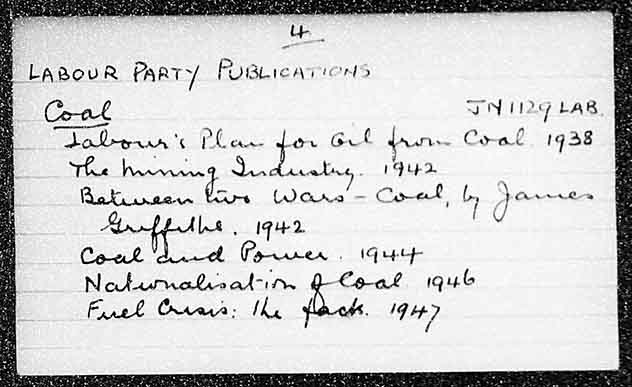 4
LABOUR PARTY PUBLICATIONS
Coal JN1129 LAB.
Labour's Plan for Oil from Coal. 1938
The Mining Industry. 1942
Between two Wars - Coal, by James
Griffiths. 1942
Coal and Power. 1944
Nationalisation of Coal 1946
Fuel Crisis: the facts. 1947